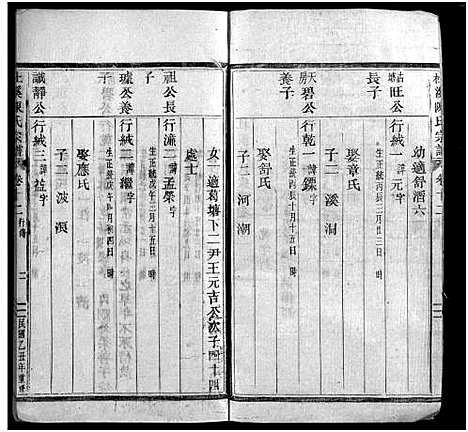 杜溪陳氏宗譜 卷十二
幼適舒泗六
枯塘旺公長子
行絨一 諱元 字
生正統丙辰三月三日 時
娶章氏
子二 溪 澗
大房碧公養子
行乾一 諱鏢 字
生正統 亥十月十五日 時
娶舒氏
子二 河 潮
女一 適葛塘下二尹王元吉公次子四十四
處士
祖公長子
行濂一 諱孟榮 字
生正統 年三月十五日 時
璩公養子
行絨二 諱 字
生正統戊午 月初四日 時
娶應氏
子二 波 漠
識靜公 行絨三 諱益 字
杜溪陳氏宗譜 卷十二 行傳 二 民國乙丑年重修